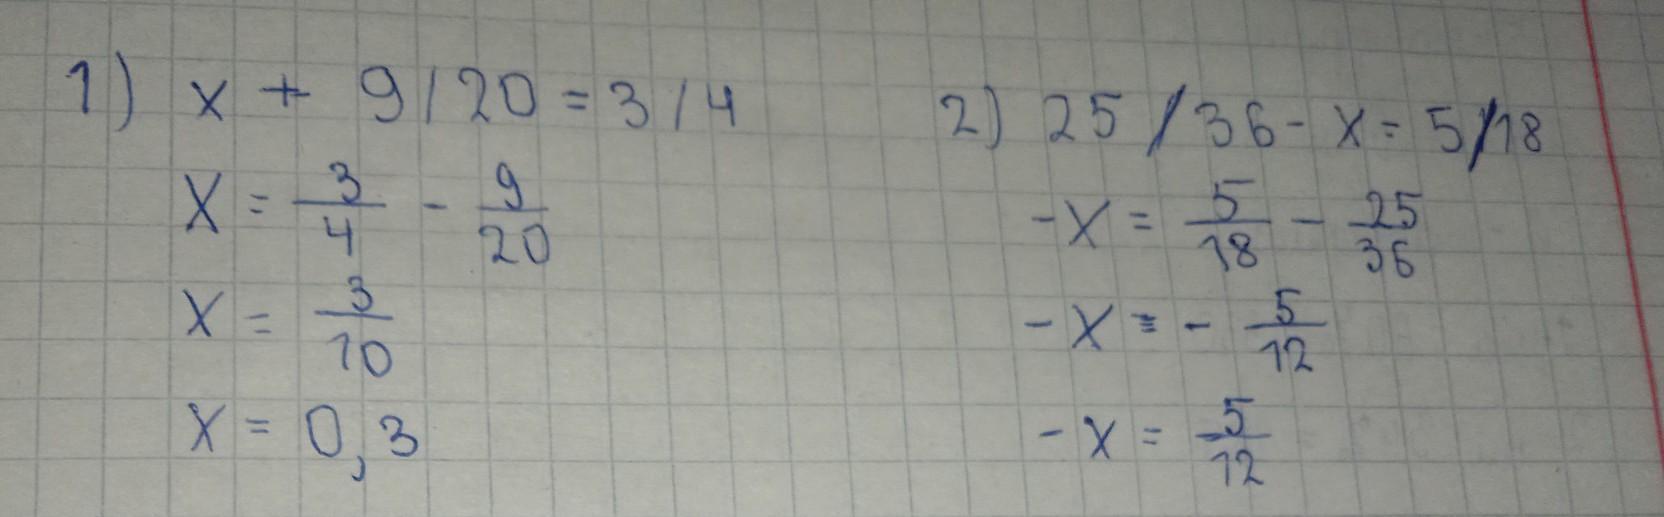 1) x + 9/20 = 3/4
X = 3/4 - 9/20
X = 3/10
X = 0,3
2) 25/36 - x = 5/18
-X = 5/18 - 25/36
-X = - 5/12
-X = 5/12